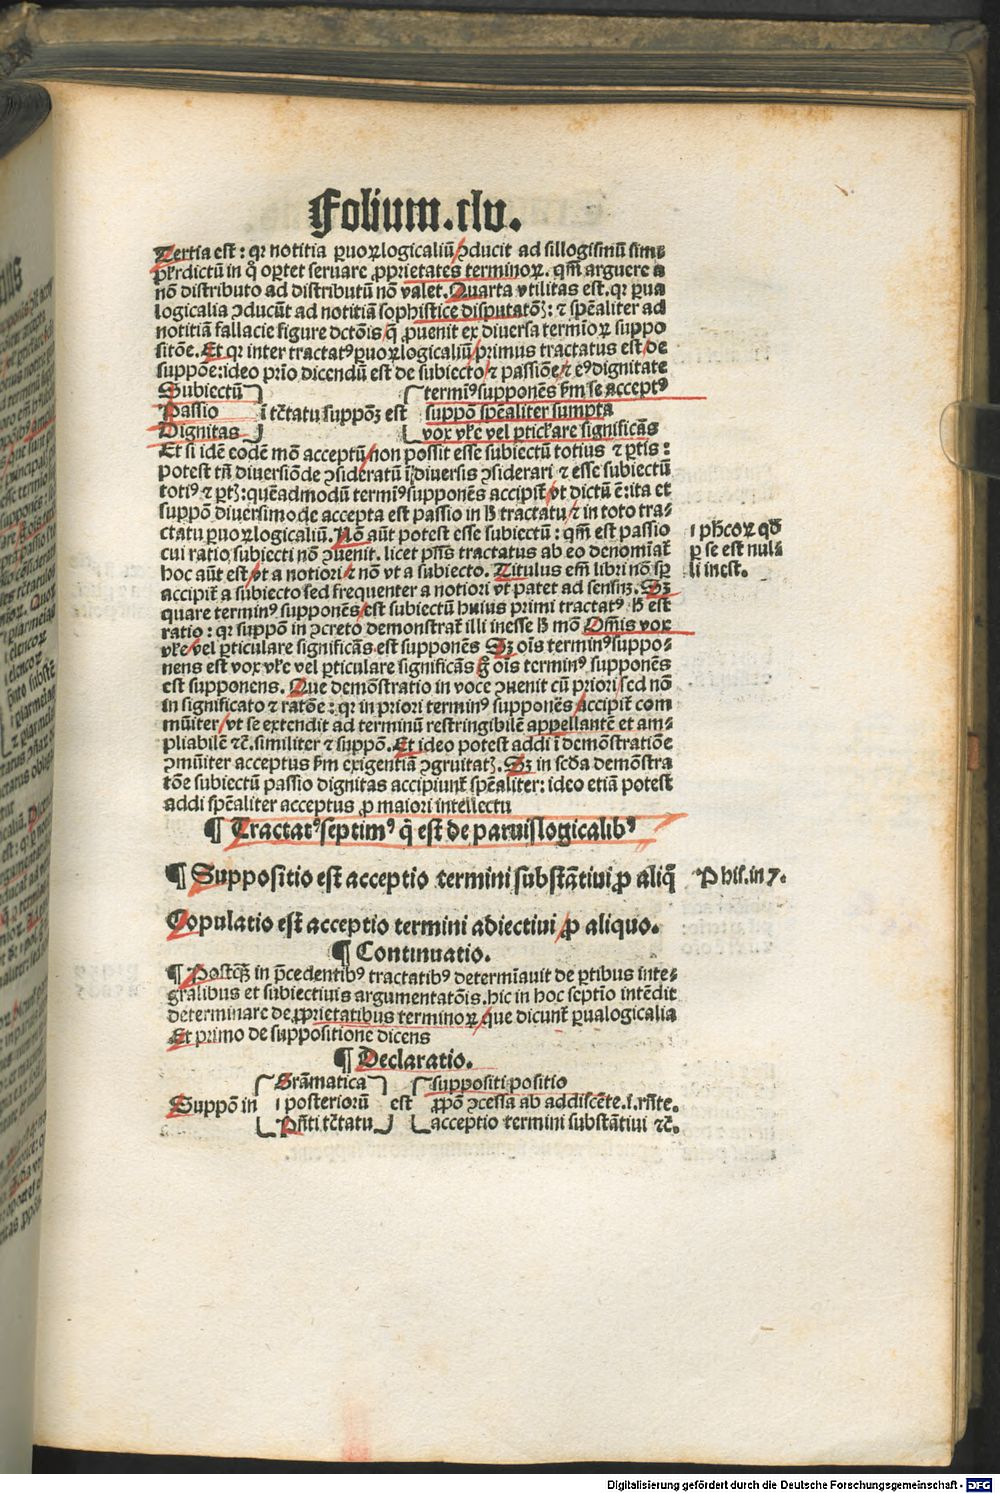 Folium.clv.
Tertia est: qr notitia ꝑuoꝝlogicaliū/ꝯducit ad sillogismū sim⸗
pr̄dictū in q̊ oꝑtet seruare ꝓprietates terminoꝝ. qm̄ arguere a
nō distributo ad distributū nō valet. Quarta vtilitas est. qr ꝑua
logicalia ꝯducūt ad notitiā sophistice disputatōꝫ: ⁊ spēaliter ad
notitiā fallacie figure dctōis/ꝗ̄ ꝓuenit ex diuersa termīoꝝ suppo
sitōe. Et qr inter tractatꝰ ꝑuoꝝlogicaliū/primus tractatus est/de
suppōe: ideo prīo dicendū est de subiecto/⁊ passiōe/⁊ eꝰ dignitate
Subiectū
Passio
Dignitas
ī tc̄tatu suppōꝫ est
termiꝰ supponēs ẜm se acceptꝰ
suppō spēaliter sumpta
vox vl̄e vel ꝑtickare significās
Et si idē eodē mō acceptū/non possit esse subiectū totius ⁊ ꝑtis:
potest tn̄ diuersiōde ꝯsideratū ī diuersis ꝯsiderari ⁊ esse subiectū
totiꝰ ⁊ ꝑtꝫ: quēadmodū termiꝰ supponēs accipit̄/vt dictū ē: ita et
suppō diuersimode accepta est passio in ħ tractatu/⁊ in toto tra⸗
ctatu ꝑuoꝝlogicaliū. Nō aūt potest esse subiectū: qm̄ est passio
cui ratio subiecti nō ꝯuenit. licet pn̄s tractatus ab eo denomīat̄
hoc aūt est/vt a notiori/⁊ nō vt a subiecto. Titulus em̄ libri nō sꝑ
accipit̄ a subiecto sed frequenter a notiori vt patet ad sensuꝫ. Sꝫ
quare terminꝰ supponēs/est subiectū huius primi tractatꝰ ħ est
ratio: qr suppō in ꝯcreto demonstrat̄ illi inesse ħ mō Om̄is vox
vl̄e/vel ꝑticulare significās est supponēs Sꝫ oīs terminꝰ suppo⸗
nens est vox vl̄e vel ꝑticulare significās g̊ oīs terminꝰ supponēs
est supponens. Que demōstratio in voce ꝯuenit cū priori/sed nō
in significato ⁊ ratōe: qr in priori terminꝰ supponēs/accipit̄ com
mūiter/vt se extendit ad terminū restringibilē appellantē et am⸗
pliabilē ⁊c̄. similiter ⁊ suppō. Et ideo potest addi ī demōstratiōe
ꝯmūiter acceptus ẜm exigentiā ꝯgruitatꝫ. Sꝫ in scd̄a demōstra
tōe subiectū passio dignitas accipiunt̄ spēaliter: ideo etiā potest
addi spēaliter acceptus ꝓ maiori intellectu
¶ Tractatꝰ septimꝰ q̄ est de paruislogicalibꝰ
¶ Suppositio est acceptio termini substātiui ꝓ aliq̄
Copulatio est acceptio termini adiectiui ꝓ aliquo.
¶ Continuatio.
¶ Postꝗꝫ in p̄cedentibꝰ tractatibꝰ determīauit de ꝑtibus inte⸗
gralibus et subiectiuis argumentatōis. hic in hoc septīo intēdit
determinare de ꝓprietatibus terminoꝝ/que dicunt̄ ꝑualogicalia
Et primo de suppositione dicens
¶ Declaratio.
Suppō in
Grāmatica
i posterioꝝ
pn̄ti tc̄tatu
est
suppositi positio
ꝓpō ꝯcessa ab addiscēte .i. rn̄te.
acceptio termini substātiui ⁊c̄.
i ph̄icoꝝ qð
ꝑ se est nul⸗
li inest.
Phil. in 7.
Digitalisierung gefördert durch die Deutsche Forschungsgemeinschaft - DFG